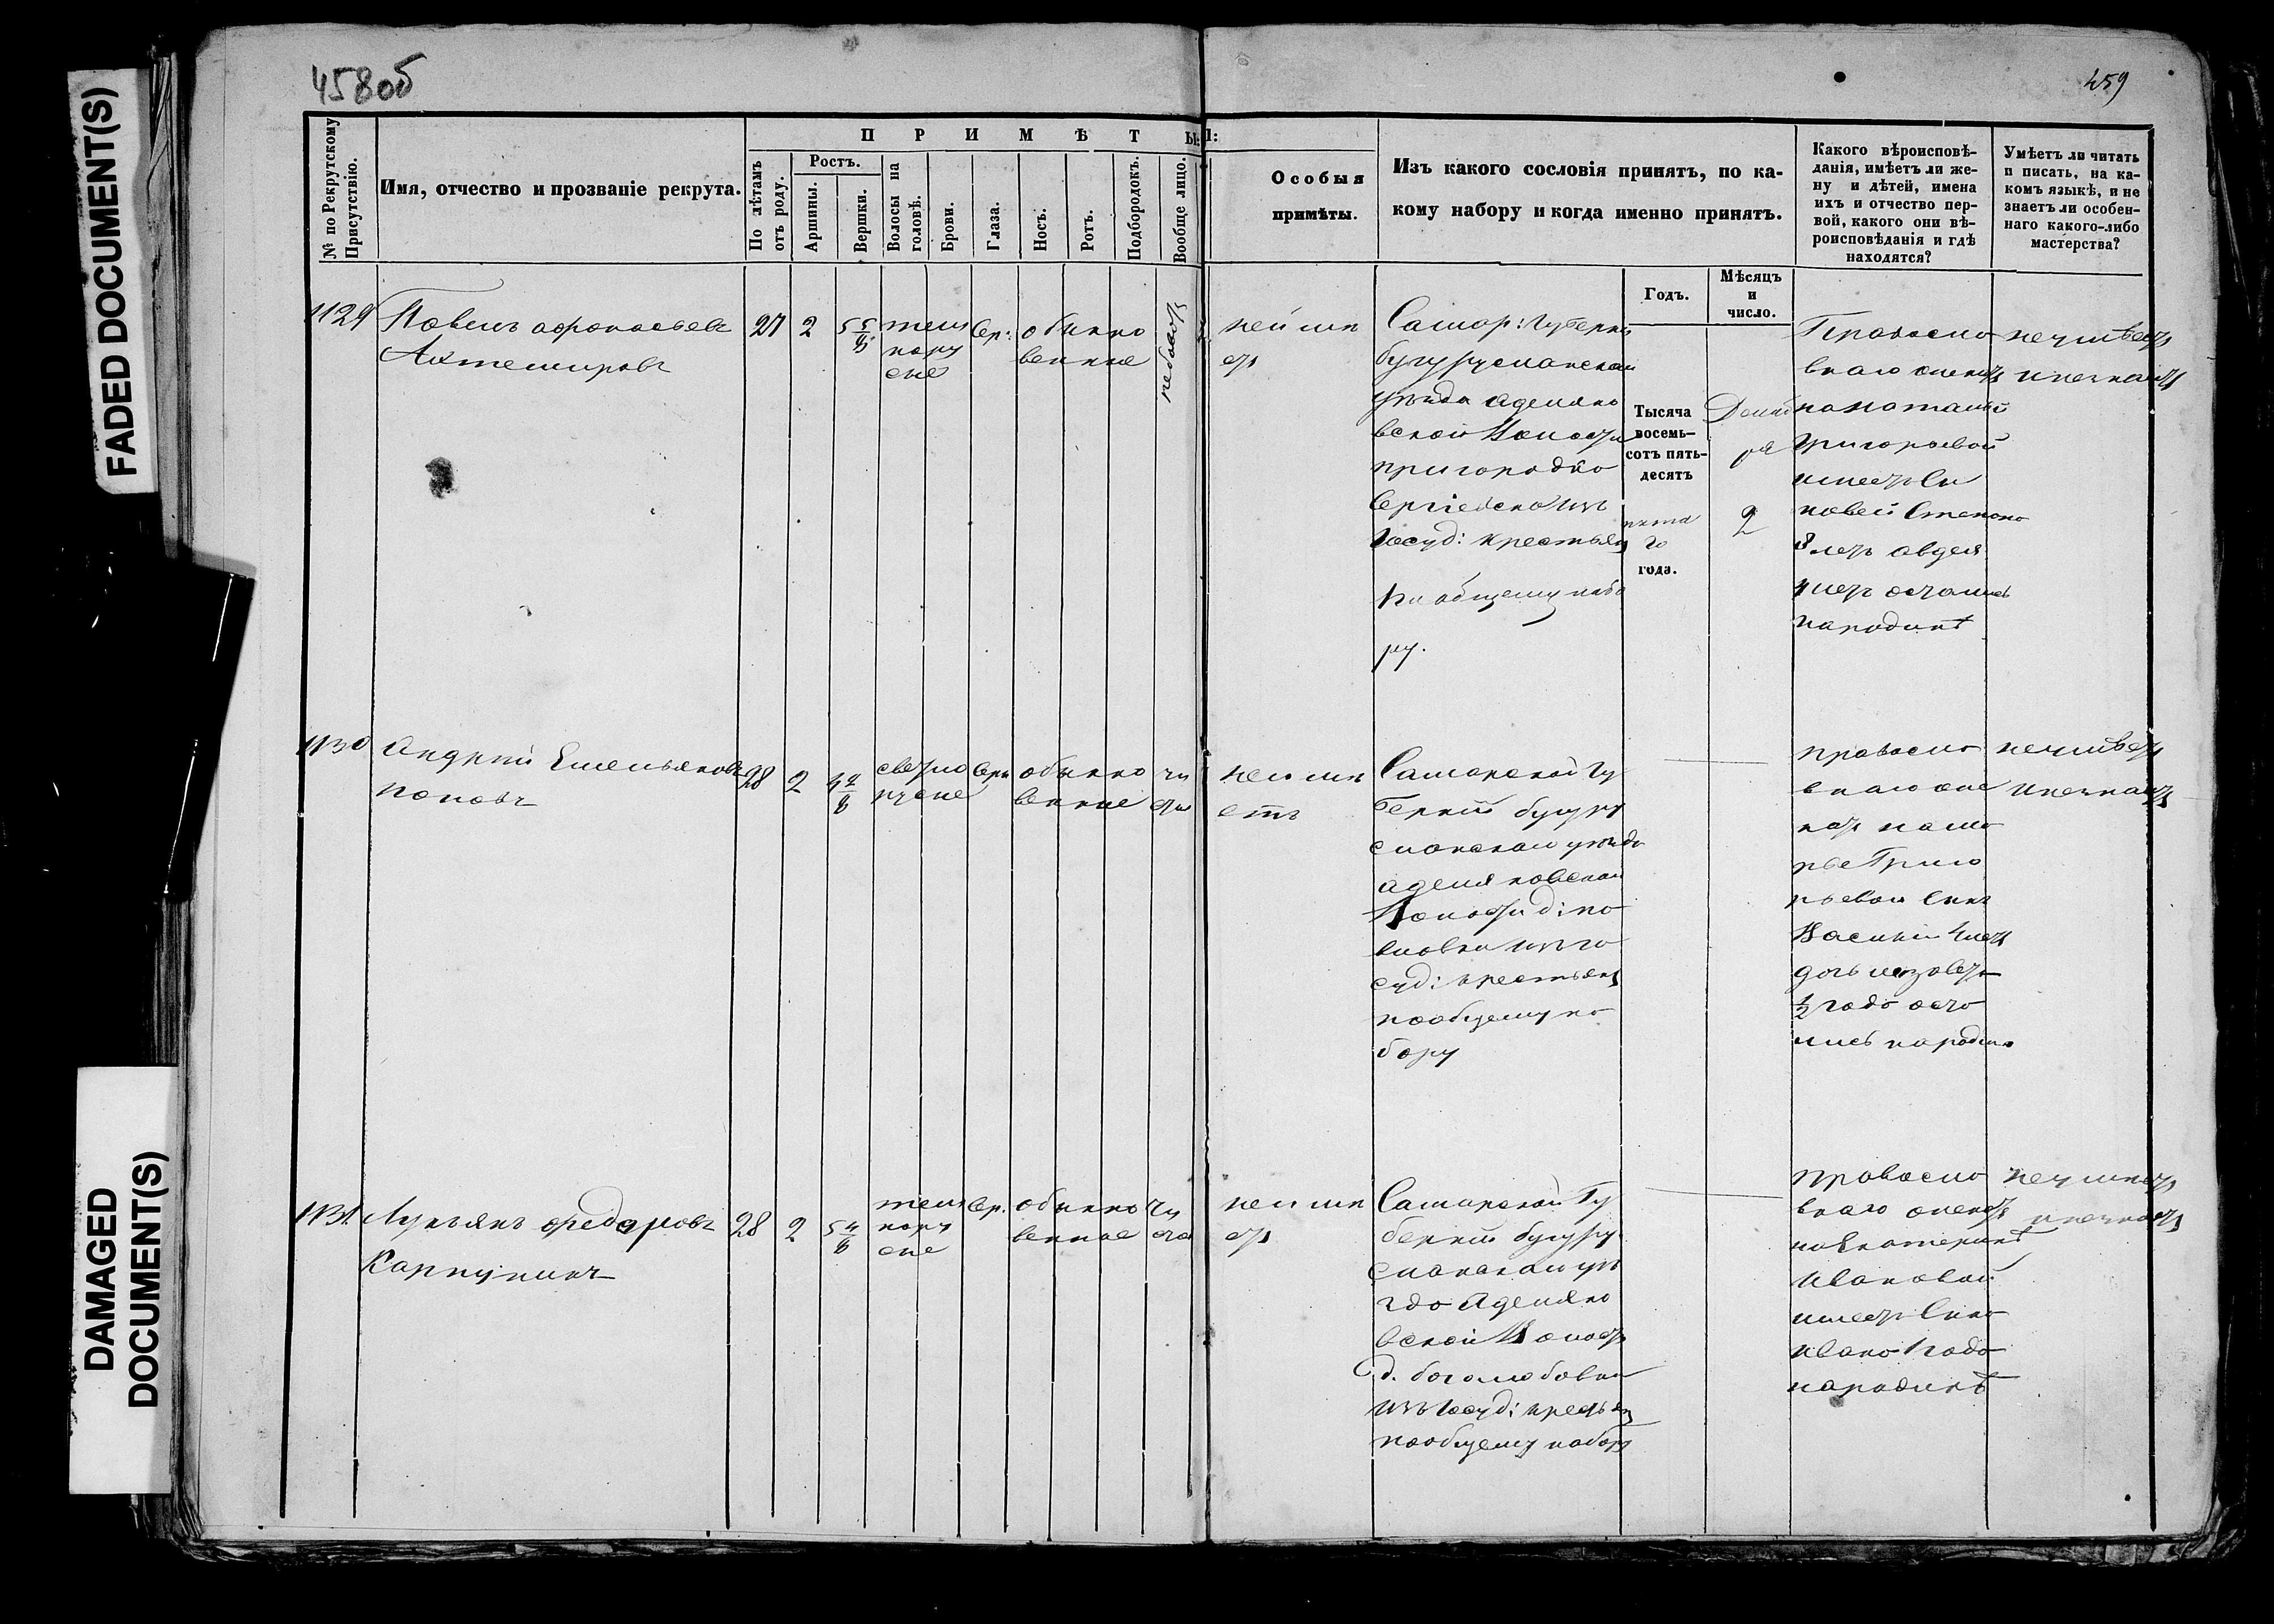 FADED DOCUMENT(S)
DAMAGED
DOCUMENT(S)
458об
459
№ по Рекрутскому
Присутствію.
Имя, отчество и прозваніе рекрута.
ПРИМѢТЫ:
По лѣтамъ
отъ роду.
Ростъ.
Аршины.
Вершки.
Волосы на
головѣ.
Брови.
Глаза.
Носъ.
Ротъ.
Подбородокъ.
Вообще лицо.
Особыя
примѣты.
Изъ какого сословія принятъ, по ка-
кому набору и когда именно принятъ.
Годъ.
Мѣсяцъ
и
число.
Какого вѣроисповѣ-
данія, имѣетъ ли же-
ну и дѣтей, имена
ихъ и отчество пер-
вой, какого они вѣ-
роисповѣданія и гдѣ
находятся?
Умѣетъ ли читать
и писать, на ка-
комъ языкѣ, и не
знаетъ ли особен-
наго какого-либо
мастерства?
1129
Павелъ афонасьевъ
Ахтемировъ
27
2
5 5/8
темн
нору
сые
Сер:
обыкно
венные
ребоватъ
неиме
етъ
Самар: Губерніи
бугурусланскаи
уезда аделяко
вской Волости
пригородка
Сергіевска изъ
Госуд: крестьян
По общему набо
ру.
Тысяча
восемь-
сотъ пять-
десятъ
пята
го
года.
Декаб
ря
2
Правосла
внаго женатъ
на Наталий
Григорьевой
имеетъ Сы
новей Степана
8 летъ авдея
4 летъ остались
народинѣ
неумѣетъ
инезнаетъ
1130
Андрей Емельяновъ
поповъ
28
2
4 2/8
светло
русые
Серы
обыкно
венные
чи
стъ
неиме
етъ
Самарской Гу
берніи бугуру
сланскаи уезда
аделяковскаи
Волости д: по
вловки изъ го
суд: крестьян
пообщему на
бору
правосла
внаго жен
натъ на ма
рье Григо
рьевои Сынъ
Василий 4 летъ
дочь
1/2 года оста
лись народине
неумѣетъ
инезнаетъ
1131
Лукьянъ федоровъ
Карпунинъ
28
2
5 4/8
темн
нору
сые
Сер.
обыкно
венные
чи
стое
неиме
етъ
Самарской Гу
берніи бугуру
сланскаи уе
зда Аделяко
вской Волост
д. боголюбовки
изъ Госуд: крестьян
пообщему набору
правосла
внаго женатъ
на Екатеринѣ
Ивановой
имеетъ Сына
Ивана 1 года
народинѣ
неумѣетъ
инезнаетъ